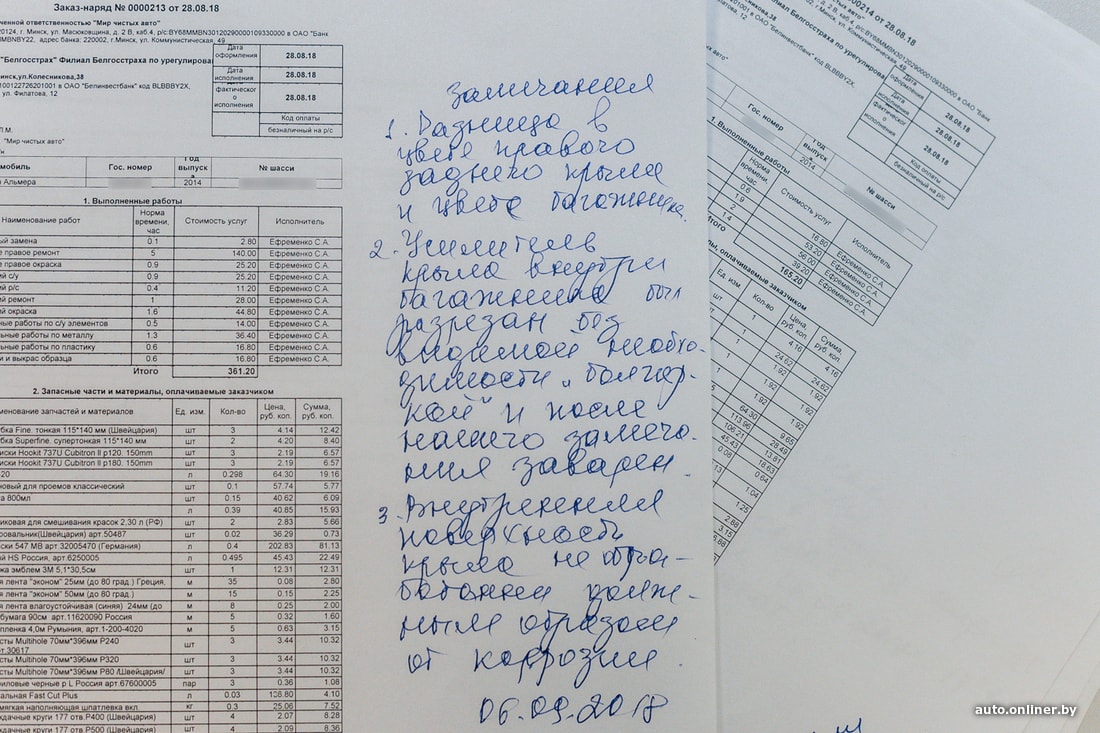 Заказ-наряд № 0000213 от 28.08.18
ченной ответственностью "Мир чистых авто"
20124, г. Минск, ул. Масюковщина, д. 2 В, каб.4, р/с:BY68MMBN30120290000109330000 в ОАО "Банк
MBNBY22, адрес банка: 220002, г.Минск, ул. Коммунистическая, 49
"Белгосстрах" Филиал Белгосстраха по урегулирова
инск,ул.Колесникова,38
100122726201001 в ОАО "Белинвестбанк" код BLBBBY2X,
ул. Филатова, 12
Дата оформления 28.08.18
Дата исполнения 28.08.18
фактическог о исполнения 28.08.18
Код оплаты
безналичный на р/с
П.М.
"Мир чистых авто"
мобиль Гос. номер Год выпуск а № шасси
Альмера 2014
1. Выполненные работы
Наименование работ Норма времени, час Стоимость услуг Исполнитель
ый замена 0.1 2.80 Ефременко С.А.
е правое ремонт 5 140.00 Ефременко С.А.
е правое окраска 0.9 25.20 Ефременко С.А.
ий с/у 0.9 25.20 Ефременко С.А.
ий р/с 0.4 11.20 Ефременко С.А.
ий ремонт 1 28.00 Ефременко С.А.
ий окраска 1.6 44.80 Ефременко С.А.
ные работы по с/у элементов 0.5 14.00 Ефременко С.А.
льные работы по металлу 1.3 36.40 Ефременко С.А.
льные работы по пластику 0.6 16.80 Ефременко С.А.
и и выкрас образца 0.6 16.80 Ефременко С.А.
Итого 361.20
2. Запасные части и материалы, оплачиваемые заказчиком
менование запчастей и материалов Ед. изм. Кол-во Цена, руб. коп. Сумма, руб. коп.
бка Fine. тонкая 115*140 мм (Швейцария) шт 3 4.14 12.42
бка Superfine. супертонкая 115*140 мм шт 2 4.20 8.40
иски Hookit 737U Cubitron II p120. 150mm шт 3 2.19 6.57
иски Hookit 737U Cubitron II p180. 150mm шт 3 2.19 6.57
20 л 0.298 64.30 19.16
новый для проемов классический шт 0.1 57.74 5.77
а 800мл шт 0.15 40.62 6.09
л 0.39 40.85 15.93
иковая для смешивания красок 2,30 л (РФ) шт 2 2.83 5.66
ровальник(Швейцария) арт.50487 шт 0.02 36.29 0.73
ски 547 MB арт.32005470 (Германия) л 0.4 202.83 81.13
ий HS Россия, арт.6250005 л 0.495 45.43 22.49
ка эмблем 3М 5,1*30,5см шт 1 12.31 12.31
я лента "эконом" 25мм (до 80 град.) Греция, м 35 0.08 2.80
я лента "эконом" 50мм (до 80 град.) м 15 0.15 2.25
я лента влагоустойчивая (синяя) 24мм (до м 8 0.25 2.00
бумага 90см арт.11620090 Россия м 5 0.32 1.60
пленка 4,0м Румыния, арт.1-200-4020 м 5 0.63 3.15
сты Multihole 70мм*396мм P240 шт 3 3.44 10.32
т.30617
сты Multihole 70мм*396мм P320 шт 3 3.44 10.32
сты Multihole 70мм*396мм P80 /Швейцария/ шт 3 3.44 10.32
риловые черные р L Россия арт.67600005 пар 3 0.36 1.08
альная Fast Cut Plus л 0.03 136.80 4.10
мягкая наполняющая шпатлевка вкл. кг 0.3 25.06 7.52
ждачные круги 177 отв.P400 (Швейцария) шт 4 2.07 8.28
ждачные круги 177 отв P500 (Швейцария) шт 4 2.09 8.36
Замечания
1. Разница в
цвете правого
заднего крыла
и цвета багажника.
2. Усилитель
крыла внутри
багажника был
разрезан без
видимой необхо-
димости „болгар-
кой" и после
нашего замеча-
ния заварен.
3. Внутренняя
поверхность
крыла не обра-
ботанна долж-
ным образом
от коррозии.
06.09.2018
0000214 от 28.08.18
д. 2 В, каб.4, р/с:BY68MMBN30120290000109330000 в ОАО "Банк
ул. Коммунистическая, 49
Филиал Белгосстраха по урегулирова
в ОАО "Белинвестбанк" код BLBBBY2X,
Дата оформления 28.08.18
Дата исполнения 28.08.18
фактическог о исполнения 28.08.18
Код оплаты
безналичный на р/с
Гос. номер Год выпуск № шасси
2014
1. Выполненные работы
Норма времени, час Стоимость услуг Исполнитель
0.6 16.80 Ефременко С.А.
1.9 53.20 Ефременко С.А.
2 56.00 Ефременко С.А.
1.4 39.20 Ефременко С.А.
Итого 165.20
оплачиваемые заказчиком
Ед. изм Кол-во Цена, руб. коп. Сумма, руб. коп.
шт 1 4.16 4.16
1 24.62 24.62
1 1.92 1.92
1 1.92 1.92
64.30 9.65
113.96 28.49
106.21 13.81
45.43 18.63
0.08 0.64
1.04
1.25
2.88
3.15
5.88
auto.onliner.by